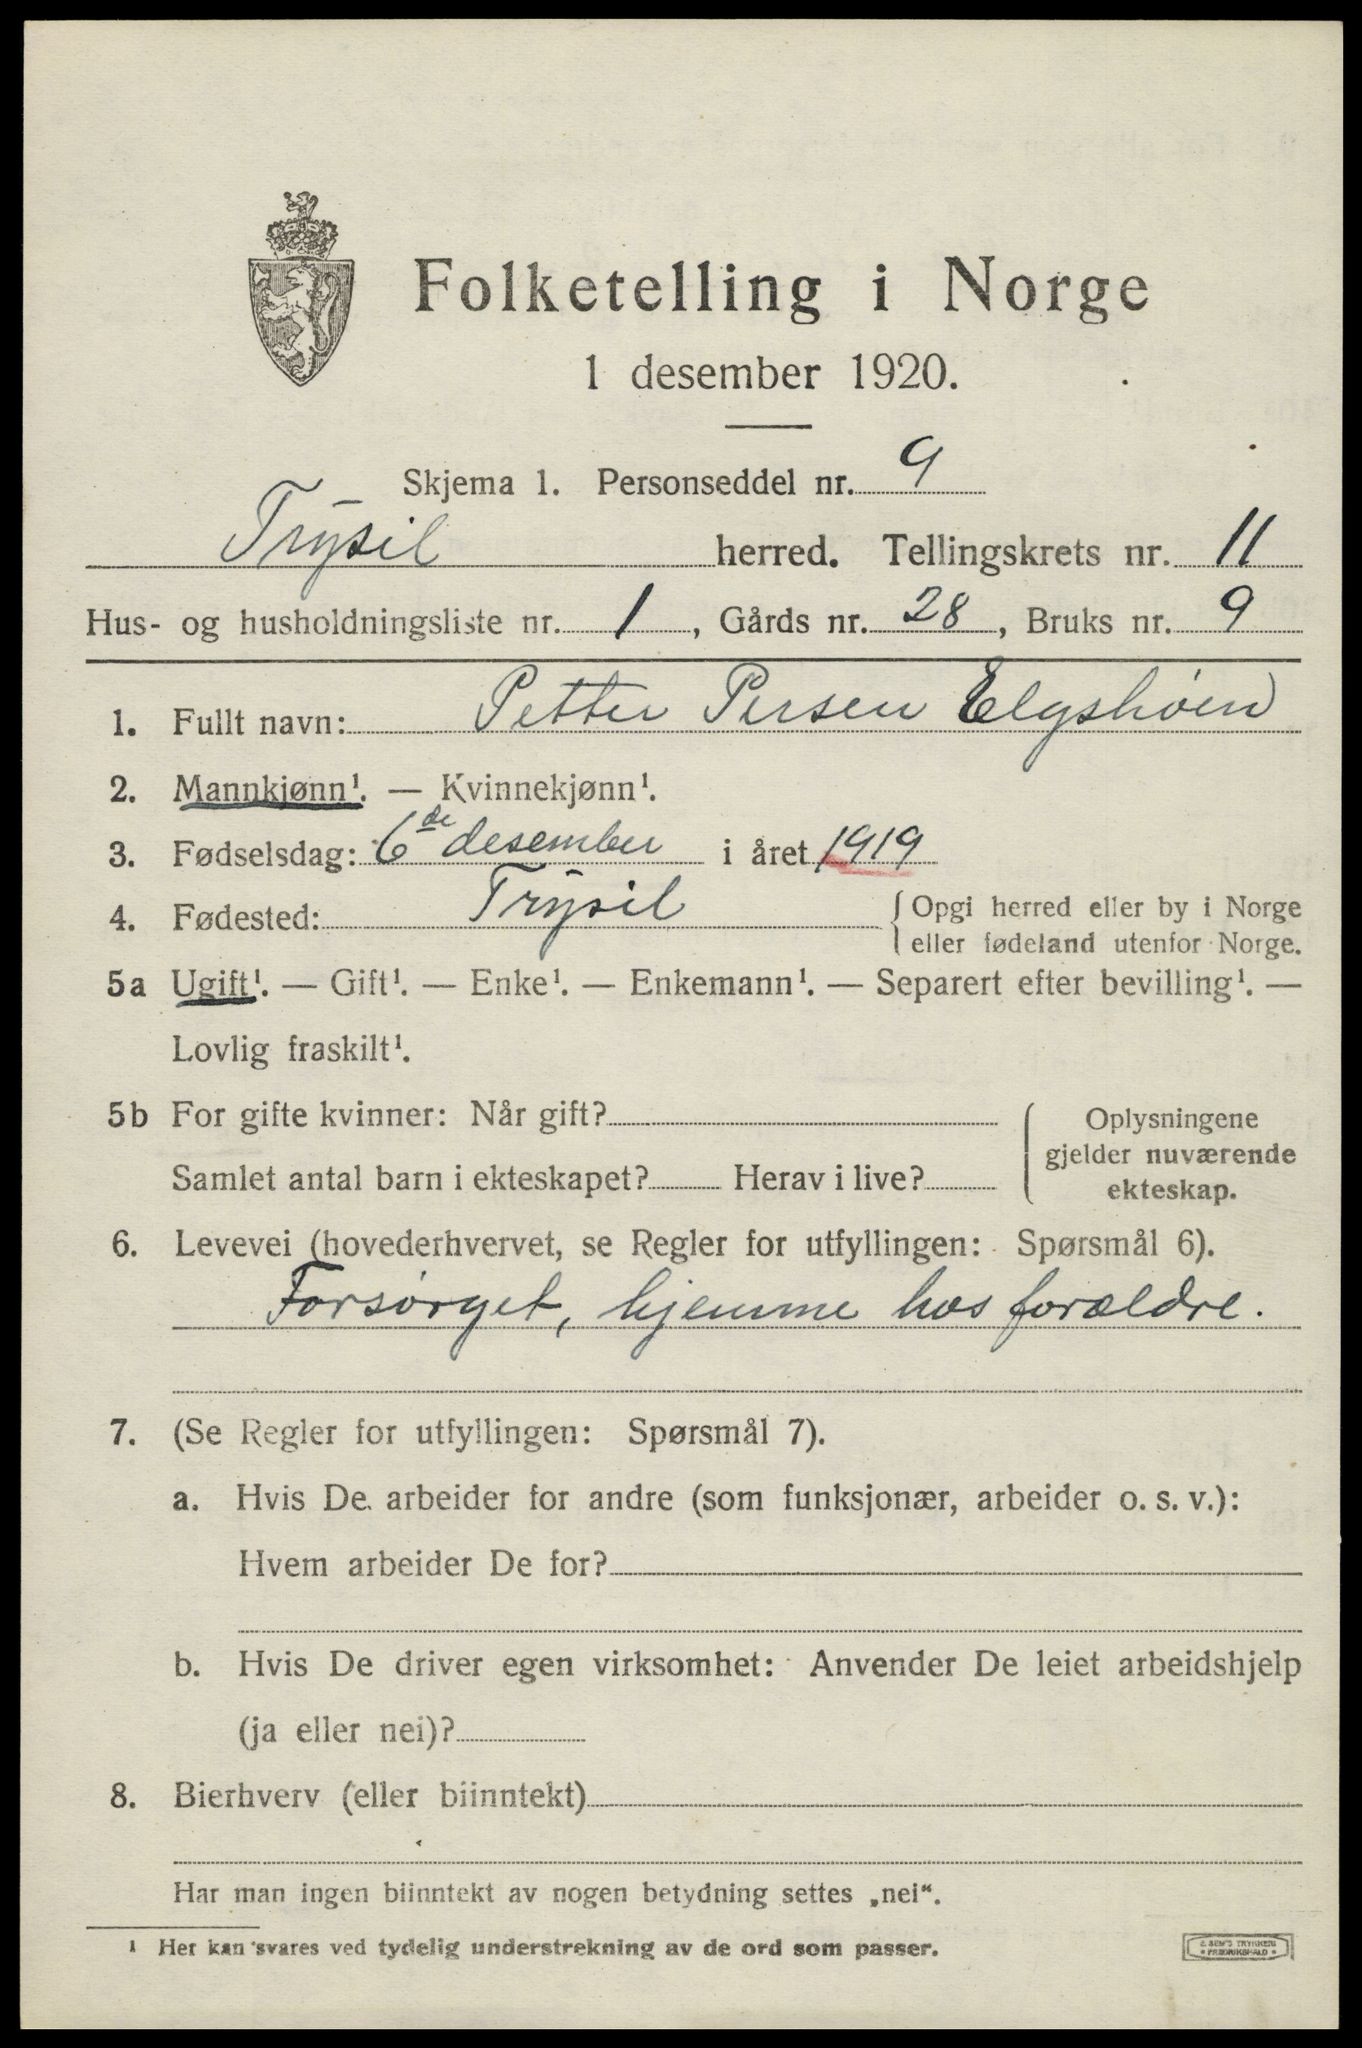 Folketelling i Norge
1 desember 1920.
Skjema 1. Personseddel nr. 9
Trysil herred. Tellingskrets nr. 11
Hus- og husholdningsliste nr. 1, Gårds nr. 28, Bruks nr. 9
1. Fullt navn: Petter Persen Elgshøen
2. Mannkjønn¹. — Kvinnekjønn¹.
3. Fødselsdag: 6de desember i året 1919
4. Fødested: Trysil { Opgi herred eller by i Norge
eller fødeland utenfor Norge.
5a Ugift¹. — Gift¹. — Enke¹. — Enkemann¹. — Separert efter bevilling¹. —
Lovlig fraskilt¹.
5b For gifte kvinner: Når gift?
Samlet antal barn i ekteskapet? Herav i live?
Oplysningene
gjelder nuværende
ekteskap.
6. Levevei (hovederhvervet, se Regler for utfyllingen: Spørsmål 6).
Forsørget, hjemme hos forældre.
7. (Se Regler for utfyllingen: Spørsmål 7).
a. Hvis De arbeider for andre (som funksjonær, arbeider o. s. v.):
Hvem arbeider De for?
b. Hvis De driver egen virksomhet: Anvender De leiet arbeidshjelp
(ja eller nei)?
8. Bierhverv (eller biinntekt)
Har man ingen biinntekt av nogen betydning settes „nei“.
¹ Her kan svares ved tydelig understrekning av de ord som passer.
E. SEM'S TRYKKERI
FREDRIKSHALD